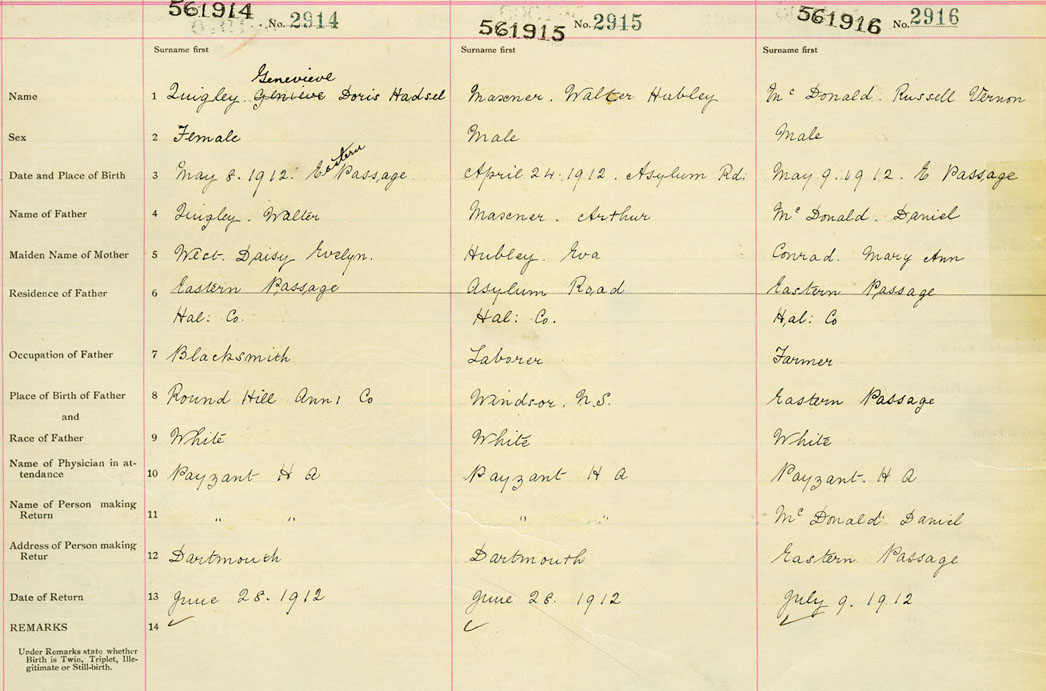 561914 No. 2914 561915 No. 2915 561916 No. 2916
Surname first Surname first Surname first
Genevieve
Name 1 Quigley. Genieve Doris Hadsel Maxner. Walter Hubley Mc Donald. Russell Vernon
Sex 2 Female Male Male
Eastern
Date and Place of Birth 3 May 8. 1912. E Passage April 24. 1912. Asylum Rd: May 9. 1912. E Passage
Name of Father 4 Quigley. Walter Maxner. Arthur Mc Donald. Daniel
Maiden Name of Mother 5 West. Daisy Evelyn. Hubley. Eva Conrad. Mary Ann
Residence of Father 6 Eastern Passage Asylum Road Eastern Passage
Hal: Co. Hal: Co. Hal: Co
Occupation of Father 7 Blacksmith Laborer Farmer
Place of Birth of Father 8 Round Hill Ann: Co Windsor. N.S. Eastern Passage
and
Race of Father 9 White White White
Name of Physician in at-
tendance 10 Payzant H A Payzant H A Payzant. H A
Name of Person making
Return 11 " " " " Mc Donald Daniel
Address of Person making
Retur 12 Dartmouth Dartmouth Eastern Passage
Date of Return 13 June 28. 1912 June 28. 1912 July 9. 1912
REMARKS 14
Under Remarks state whether
Birth is Twin, Triplet, Ille-
gitimate or Still-birth.